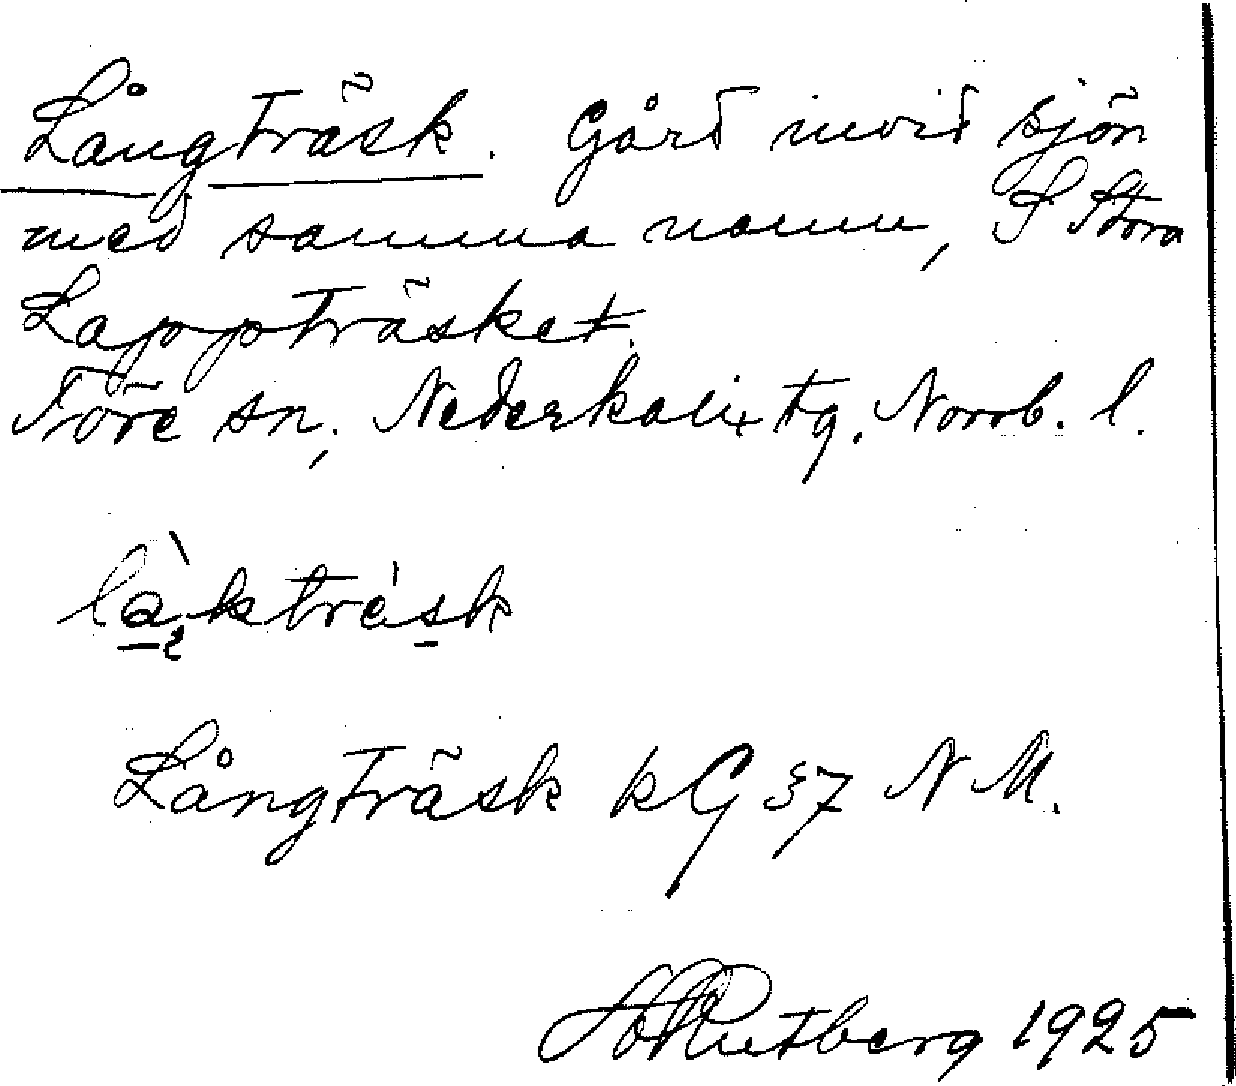 Långträsk. Gård invid sjön
med samma namn, S Stora
Lappträsket.
Töre sn, Nederkalix tg. Norrb. l.
làkträsk
Långträsk kG 37 N M.
Rutberg 1925